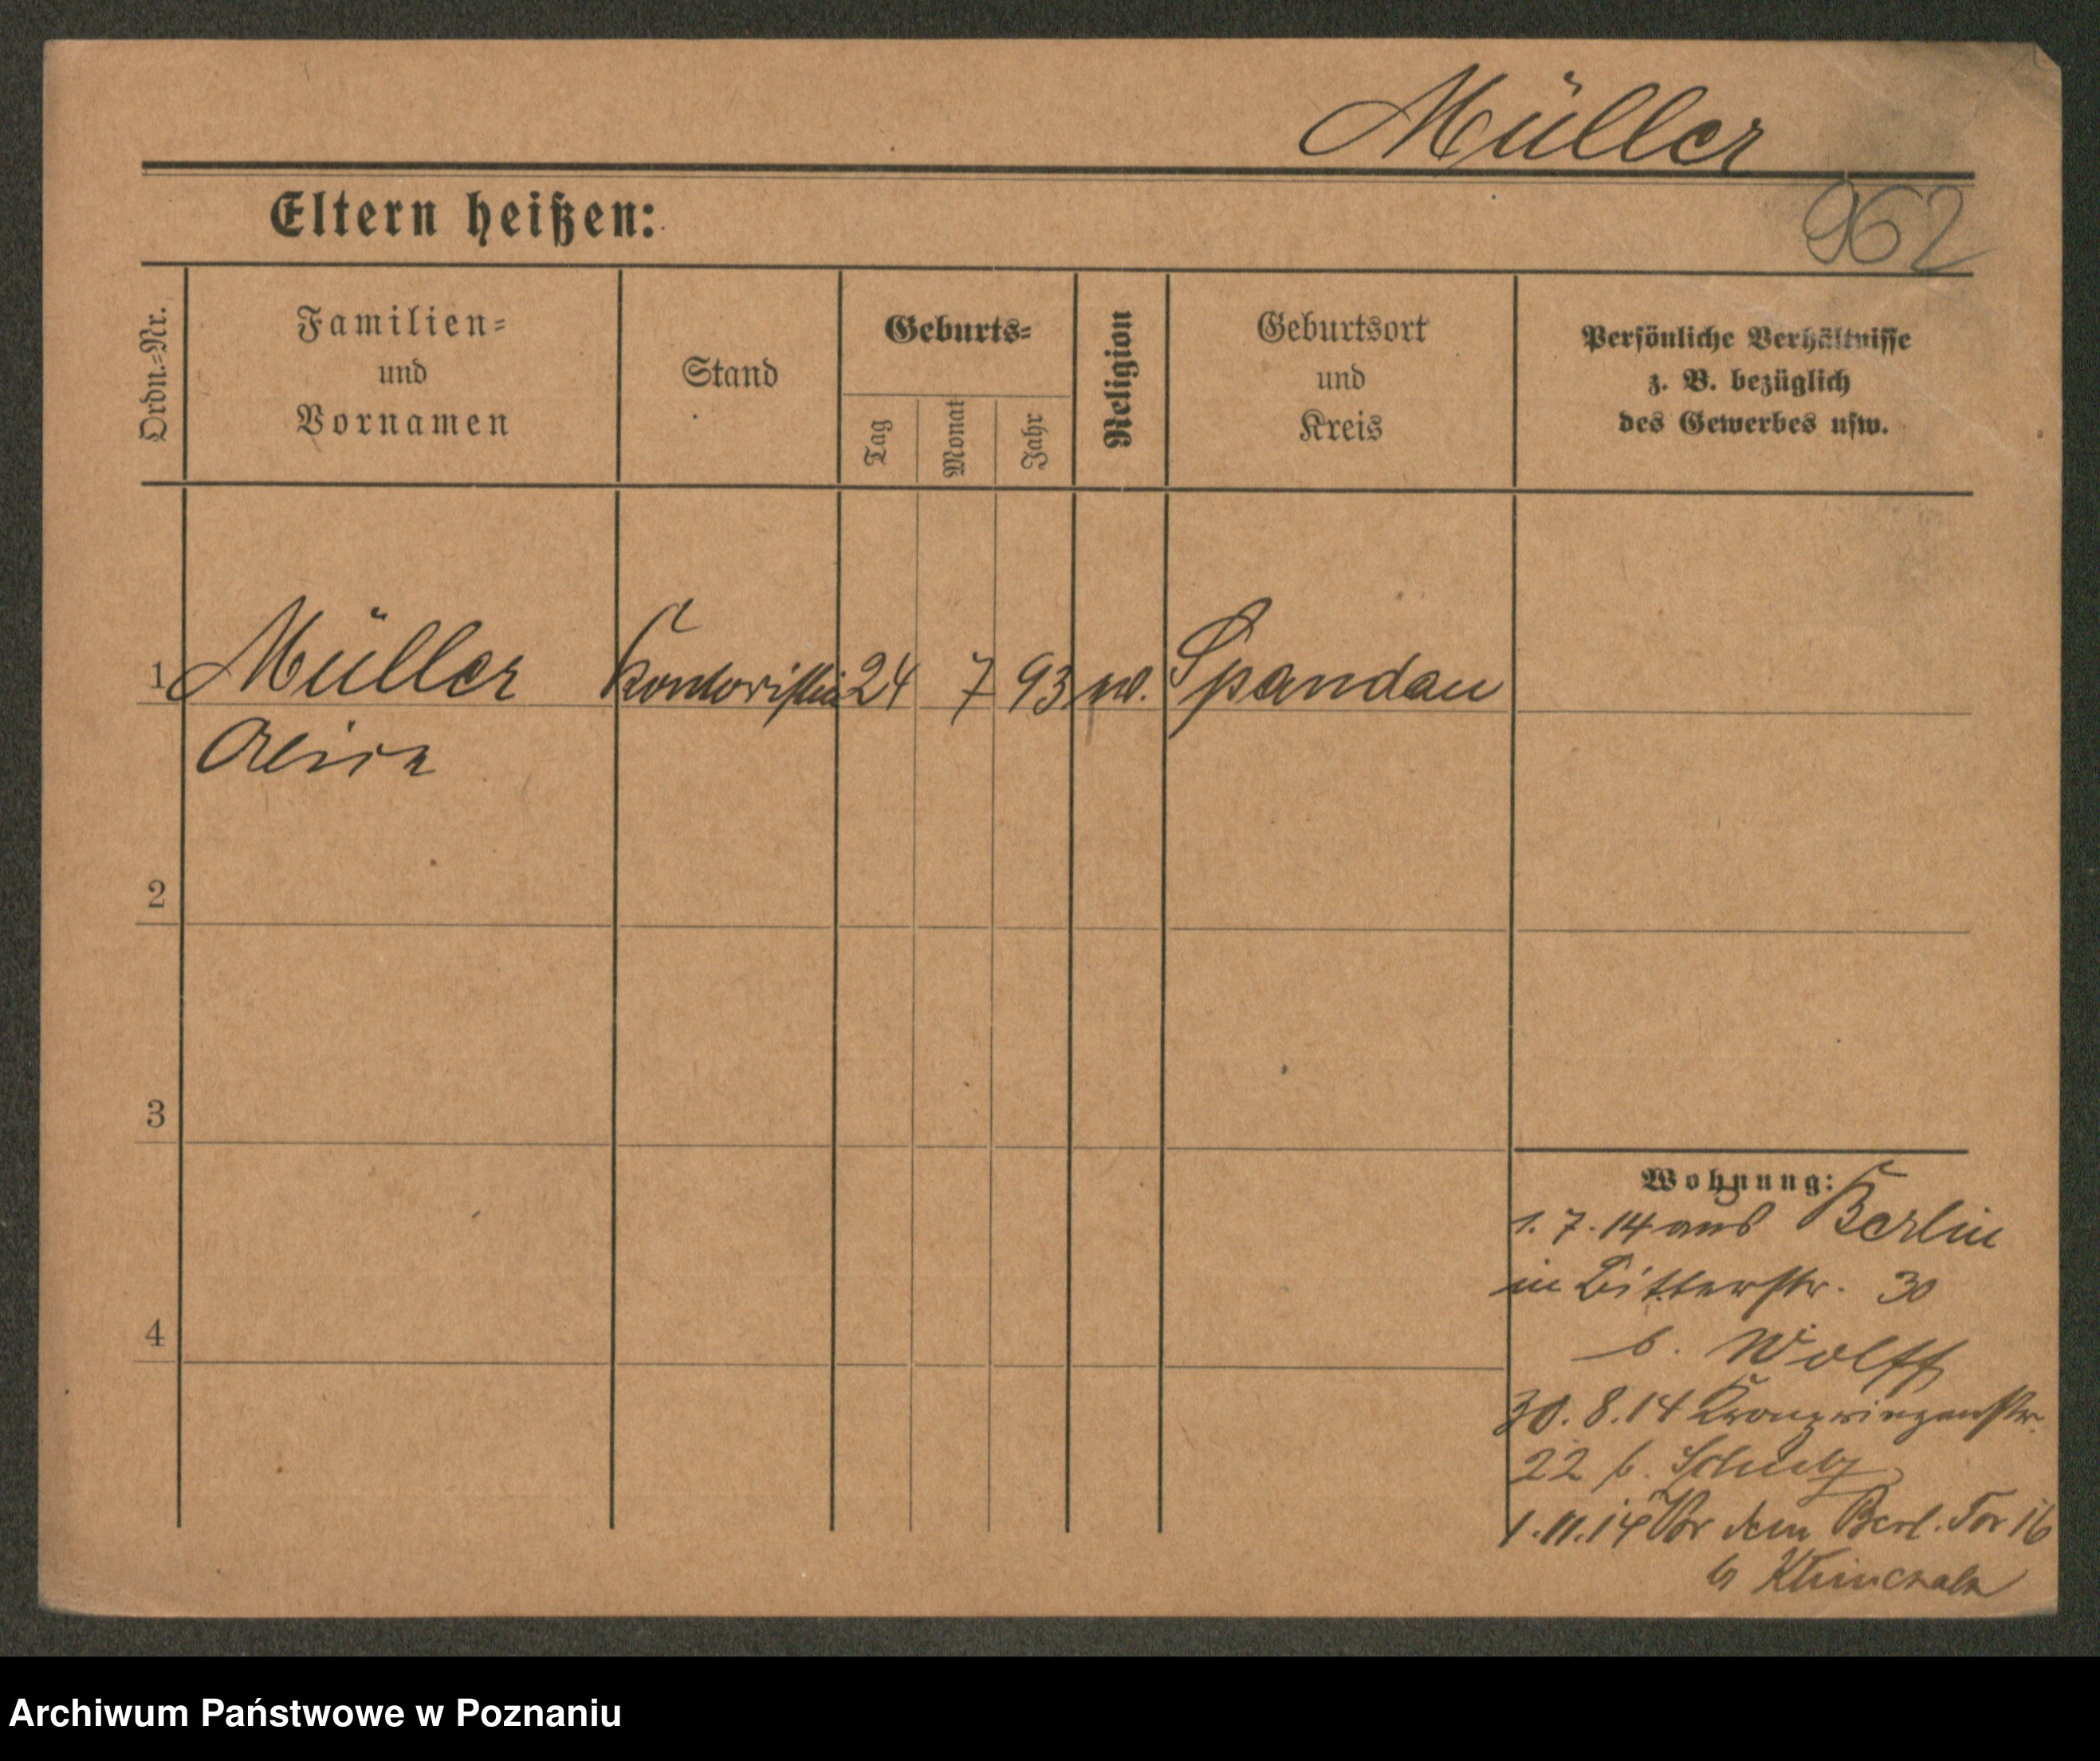 Müller
962
Eltern heißen:
Ordn.-Nr.
Familien-
und
Vornamen
Stand
Geburts-
Tag
Monat
Jahr
Religion
Geburtsort
und
Kreis
Persönliche Verhältnisse
z. B. bezüglich
des Gewerbes usw.
1 Müller Kontoristin 24 7 93 Spandau
2
3
4
Wohnung:
1.7.14 aus Berlin
in Ritterstr. 30
b. Wolff
30.8.14 Kronprinzenstr.
22 b. Schulz
1.11.14 Vor dem Berl. Tor 16
b
Archiwum Państwowe w Poznaniu